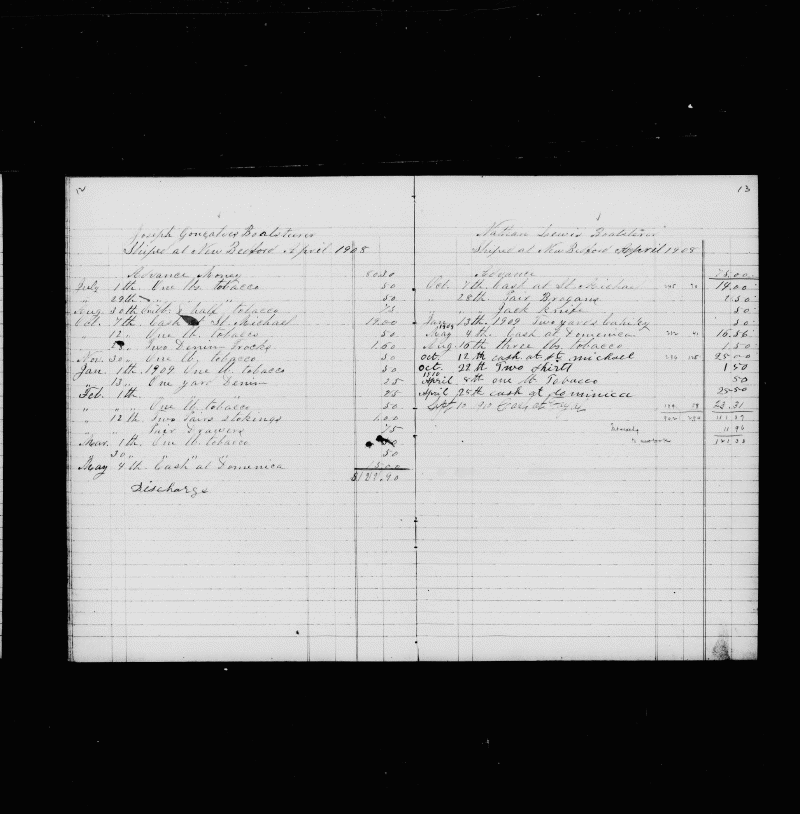 12
Joseph Gonsalves Boatsteerer
Shiped at New Bedford April 1908
Advance Money 80.30
July 1th. One lb. tobacco 50
" 29th " " " 50
Aug. 30th One & half " tobacco 75
Oct. 7th. Cash at St. Michael 19.00
" 12 " One lb. tobacco 50
" 28 " Two Denim Frocks 1.00
Nov. 30 " One lb. tobacco 50
Jan. 1th. 1909 One lb. tobacco 50
" 13 " One yard Denim 25
Feb. 1th. " " " 25
" " " One lb. tobacco 50
" 12th Two Pairs Stokings 1.00
" " Pair Drawers 75
Mar. 1th. One lb. tobacco 50
" 30 " " " 50
May 4th. Cash at Domenica 15.00
Discharge
13
Nathan Lewis Boatsteerer
Shiped at New Bedford April 1908
Advance 75.00
Oct. 7th. Cash at St. Michael 19.00
" 28th. Pair Brogans 1.50
" " Jack Knife 50
Jan. 13th. 1909 Two yards 50
May 1909 4th. Cash at Domenica
Aug. 16th three lbs. tobacco 1.50
Oct. 12th cash at St michael 25.00
Oct. 22th Two Shirts 1.50
1910
April 8th one lb Tobacco 50
April 25th cash at Dominica 25.50
Sept 10